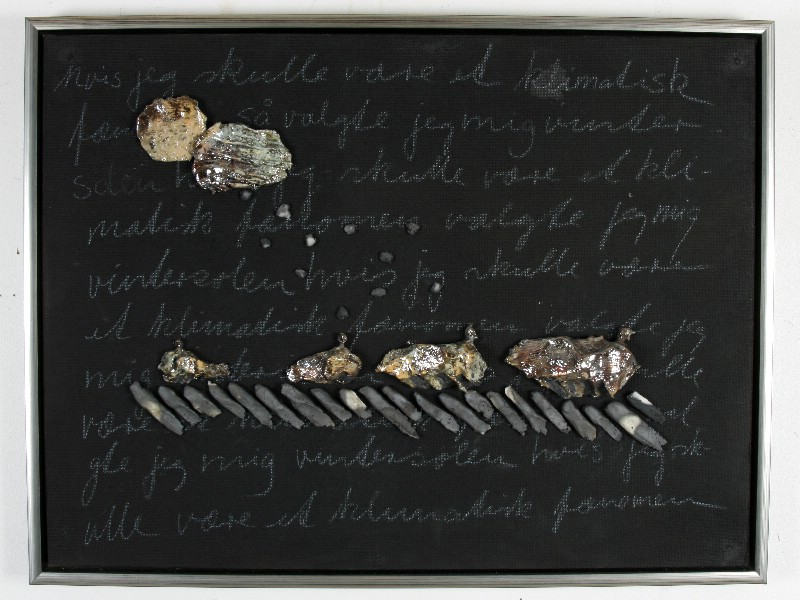 hvis jeg skulle være et klimatisk
så valgte jeg mig vinter-
solen skulle være et kli-
matisk fænomen valgte jeg mig
vintersolen hvis jeg skulle være
et klimatisk fænomen valgte jeg
mig
være
gte jeg mig vintersolen hvis jeg sk-
ulle være et klimatisk fænomen